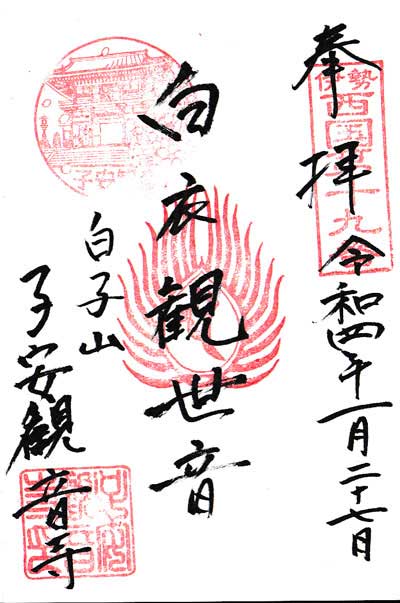 奉拝
伊勢
西国第二十九
令和四年一月二十七日
白衣観世音
白子山
子安観音寺